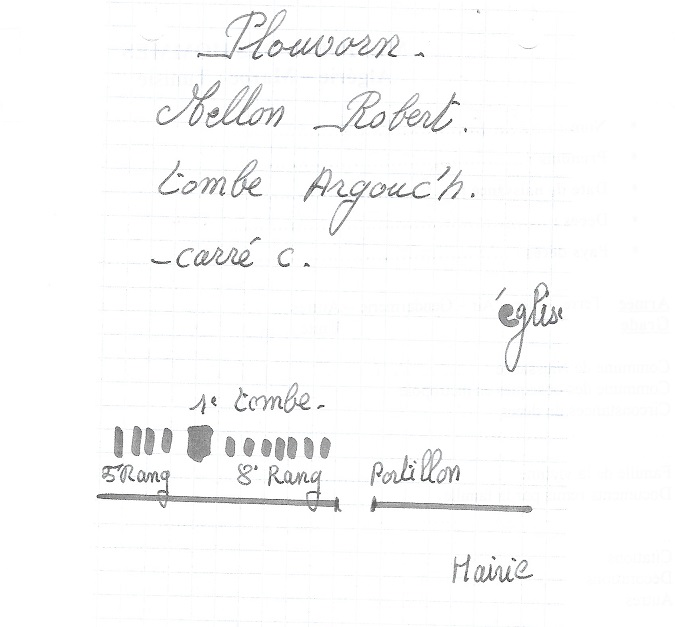 Plouvorn.
Mellon Robert.
tombe Argouc'h.
-carré c.
église
1e tombe-
5e Rang 8e Rang Portillon
Mairie